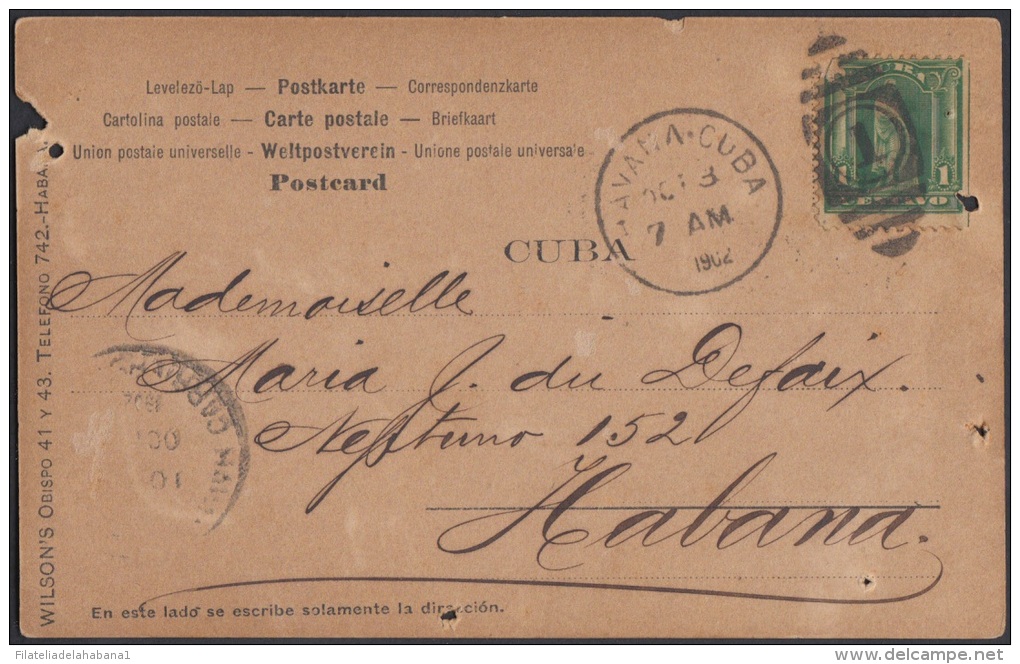 Levelezö-Lap — Postkarte — Correspondenzkarte
Cartolina postale — Carte postale — Briefkaart
Union postale universelle - Weltpostverein - Unione postale universale
Postcard
CUBA
HAVANA · CUBA
OCT 3
7 AM
1902
CUBA
1 1
CENTAVO
1
Mademoiselle
Maria J. du Defaix.
Neptuno 152
Habana.
CARRIER
1902
OCT
10
WILSON'S OBISPO 41 Y 43. TELEFONO 742.-HABA
En este lado se escribe solamente la dirección.
Filateliadelahabana1
delcampe.net